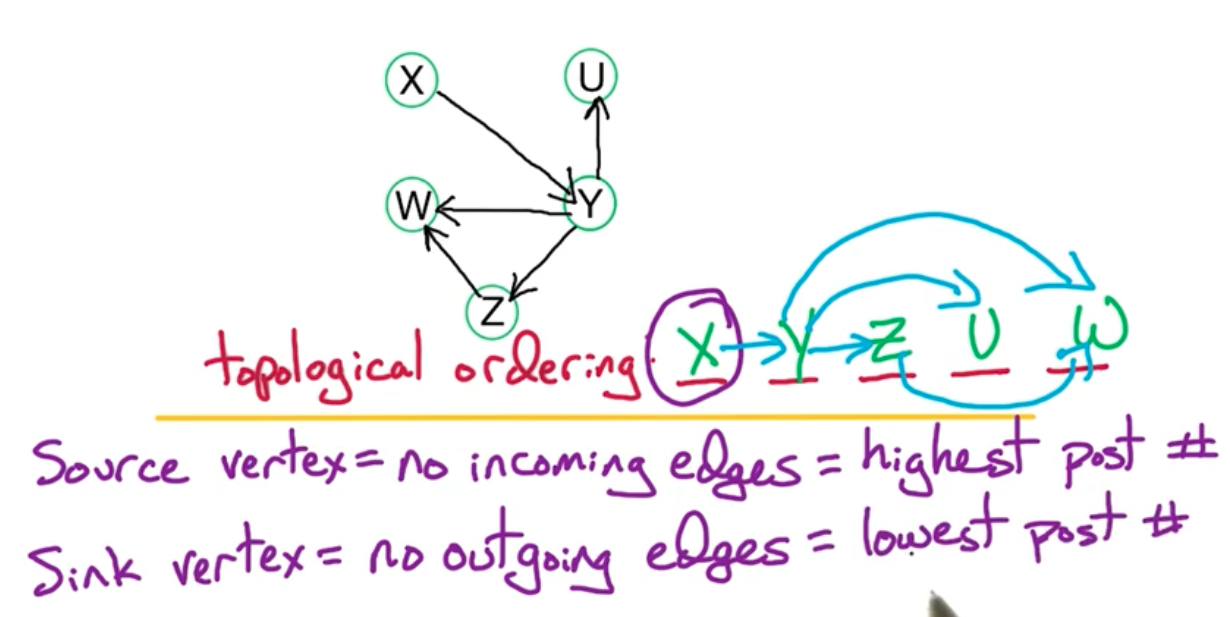 X U
W Y
Z
topological ordering: X Y Z U W
Source vertex = no incoming edges = highest post #
Sink vertex = no outgoing edges = lowest post #